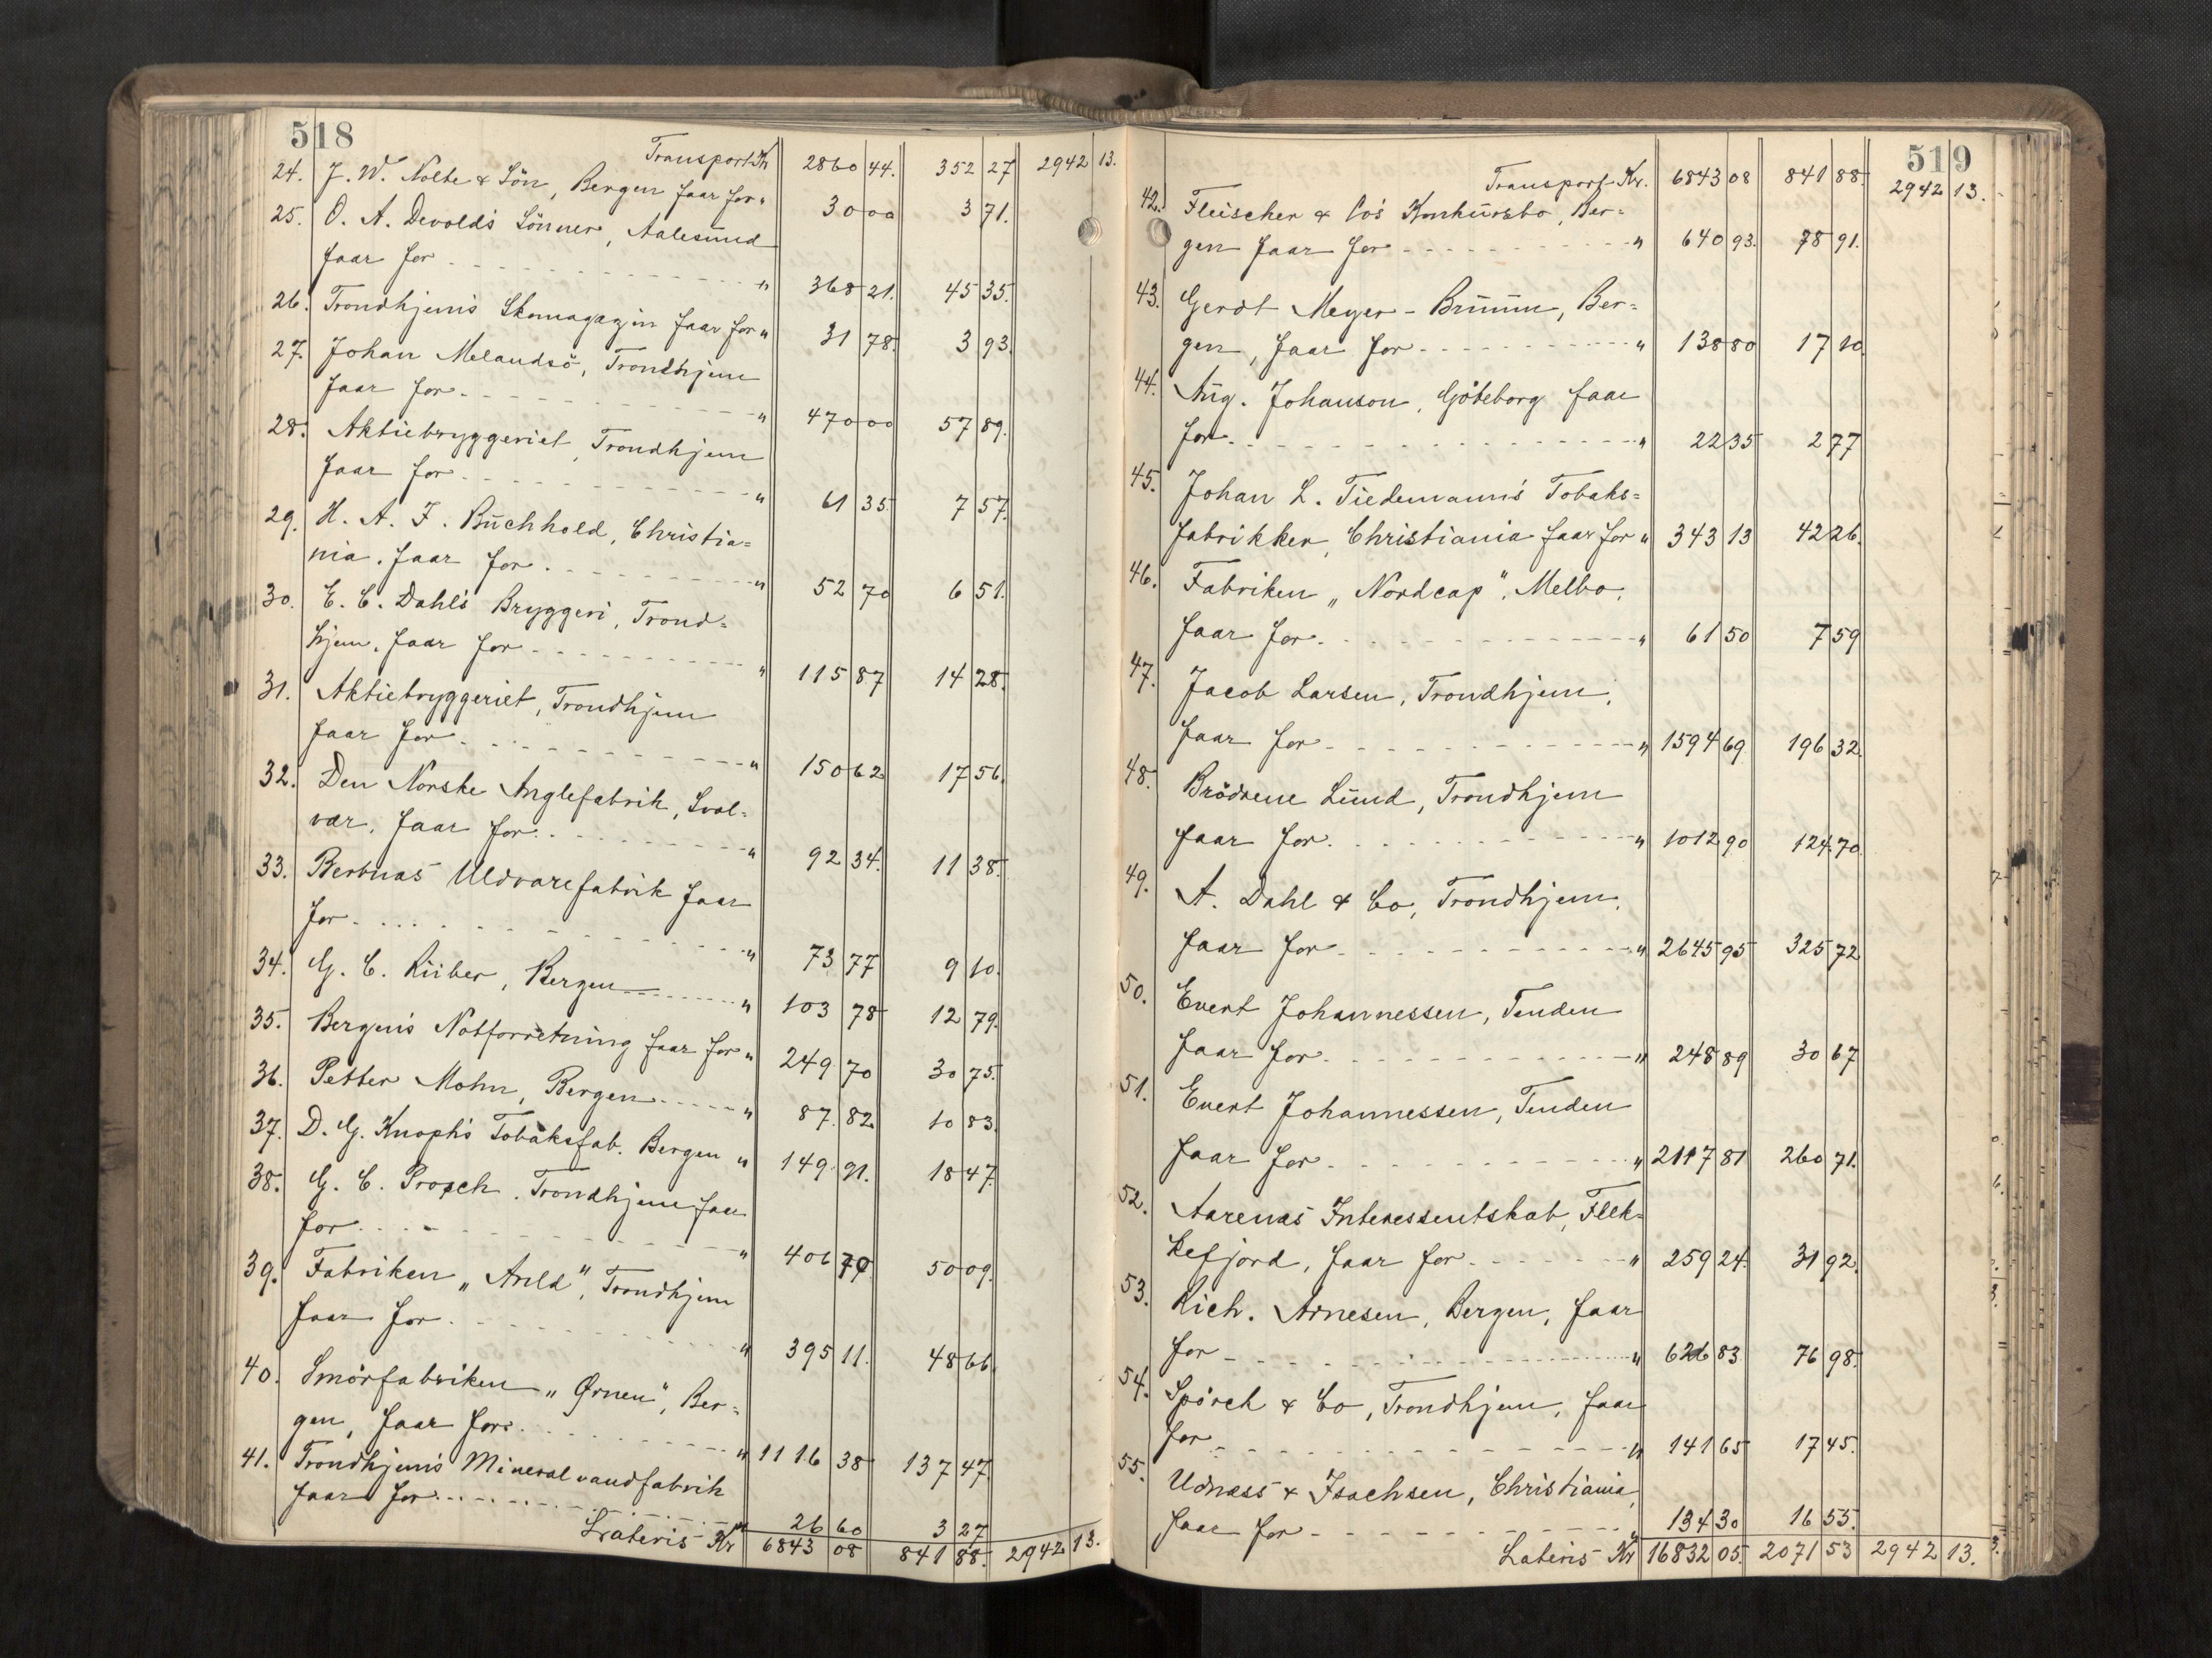 518
Transport Kr 2860 44. 352 27 2942 13.
24. J. W. Nolte & Sön, Bergen faar for " 30 00 3 71.
25. O. A. Devold's Sönner, Aalesund
faar for - - - " 368 21. 45 35.
26. Trondhjem's Skomagazin faar for " 31 78. 3 93.
27. Johan Melandsö, Trondhjem
faar for - - - " 470 00 57 89.
28. Aktiebryggeriet, Trondhjem
faar for - - - " 61 35. 7 57.
29. H. A. F. Buchhold, Christia=
nia. faar for - - - " 52 70 6 51.
30. E. C. Dahl's Bryggeri, Trond=
hjem. faar for - - - " 115 87 14 28.
31. Aktiebryggeriet, Trondhjem
faar for - - - " 150 62 17 56.
32. Den Norske Anglefabrik, Svol=
vær, faar for - - - " 92 34. 11 38.
33. Berbnas Uldvarefabrik faar
for - - - " 73 77 9 10.
34. G. C. Rieber, Bergen - - - " 103 78 12 79.
35. Bergens Notforretning faar for " 249 70 30 75.
36. Petter Mohn, Bergen - - - " 87. 82 10 83.
37. D. G. Knoph's Tobaksfab. Bergen " 149. 91. 18 47.
38. G. C. Prosch. Trondhjem faar
for - - - " 406 79 50 09.
39. Fabriken „Arild", Trondhjem
faar for - - - " 395 11. 48 66.
40. Smörfabriken „Ørnen", Ber=
gen, faar for - - - " 1116 38 137 47.
41. Trondhjem's Mineralvandfabrik
faar for - - - " 26 60 3 27
Lateris Kr 6843 08 841 88. 2942 13.
519
Transport Kr. 6843 08 841 88. 2942 13.
42. Fleischer & Co's Konkursbo, Ber=
gen faar for - - - " 640 93. 78 91.
43. Gerdt Meyer - Bruun, Ber=
gen, faar for - - - " 138 80 17 10.
44. Aug. Johanson, Göteborg faar
for - - - " 22 35 2 77
45. Johan L. Tiedemann's Tobaks=
fabrikker, Christiania faar for " 343 13 42 26.
46. Fabriken „Nordcap". Melbo.
faar for - - - " 61 50 7 59
47. Jacob Larsen, Trondhjem,
faar for - - - " 1594 69 196 32.
48. Brödrene Lund, Trondhjem
faar for - - - " 1012 90 124. 70
49. A. Dahl & Co, Trondhjem.
faar for - - - " 2645 95 325 72
50. Evert Johannessen, Tenden
faar for - - - " 248 89 30 67
51. Evert Johannessen, Tenden
faar for - - - " 2117 81 260 71.
52. Aarenas Interessentskab, Flek=
kefjord, faar for - - - " 259 24. 31 92.
53. Rich. Arnesen, Bergen, faar
for - - - " 626 83 76 98.
54. Spörck & Co, Trondhjem, faar
for - - - " 141 65 17 45.
55. Udnæss & Isachsen, Christiania,
faar for - - - " 134 30 16 55.
Lateris Kr 16832 05. 2071 53 2942 13.